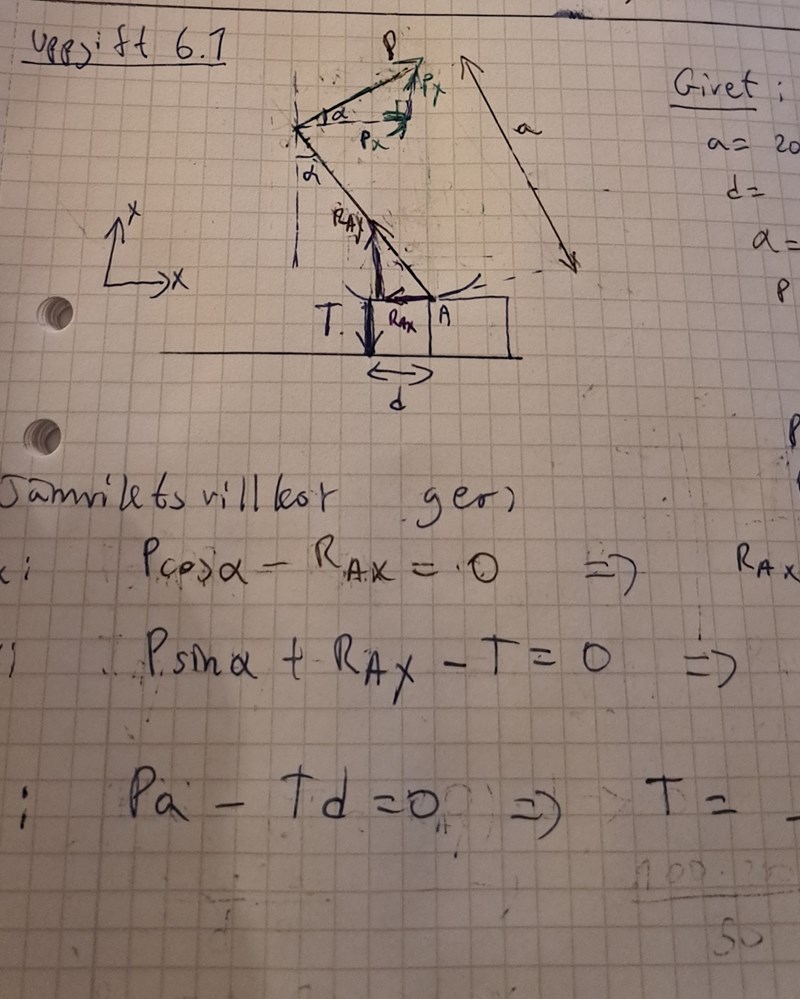 Uppgift 6.1
P
Px
α
Px
α
a
RAy
RAx
A
T
d
x
x
Givet:
a = 20
d =
α =
P
Jämvikts villkor ger;
: Pcosα - RAX = 0 => RAX
Psinα + RAy - T = 0 =>
; Pa - Td = 0 => T =
50